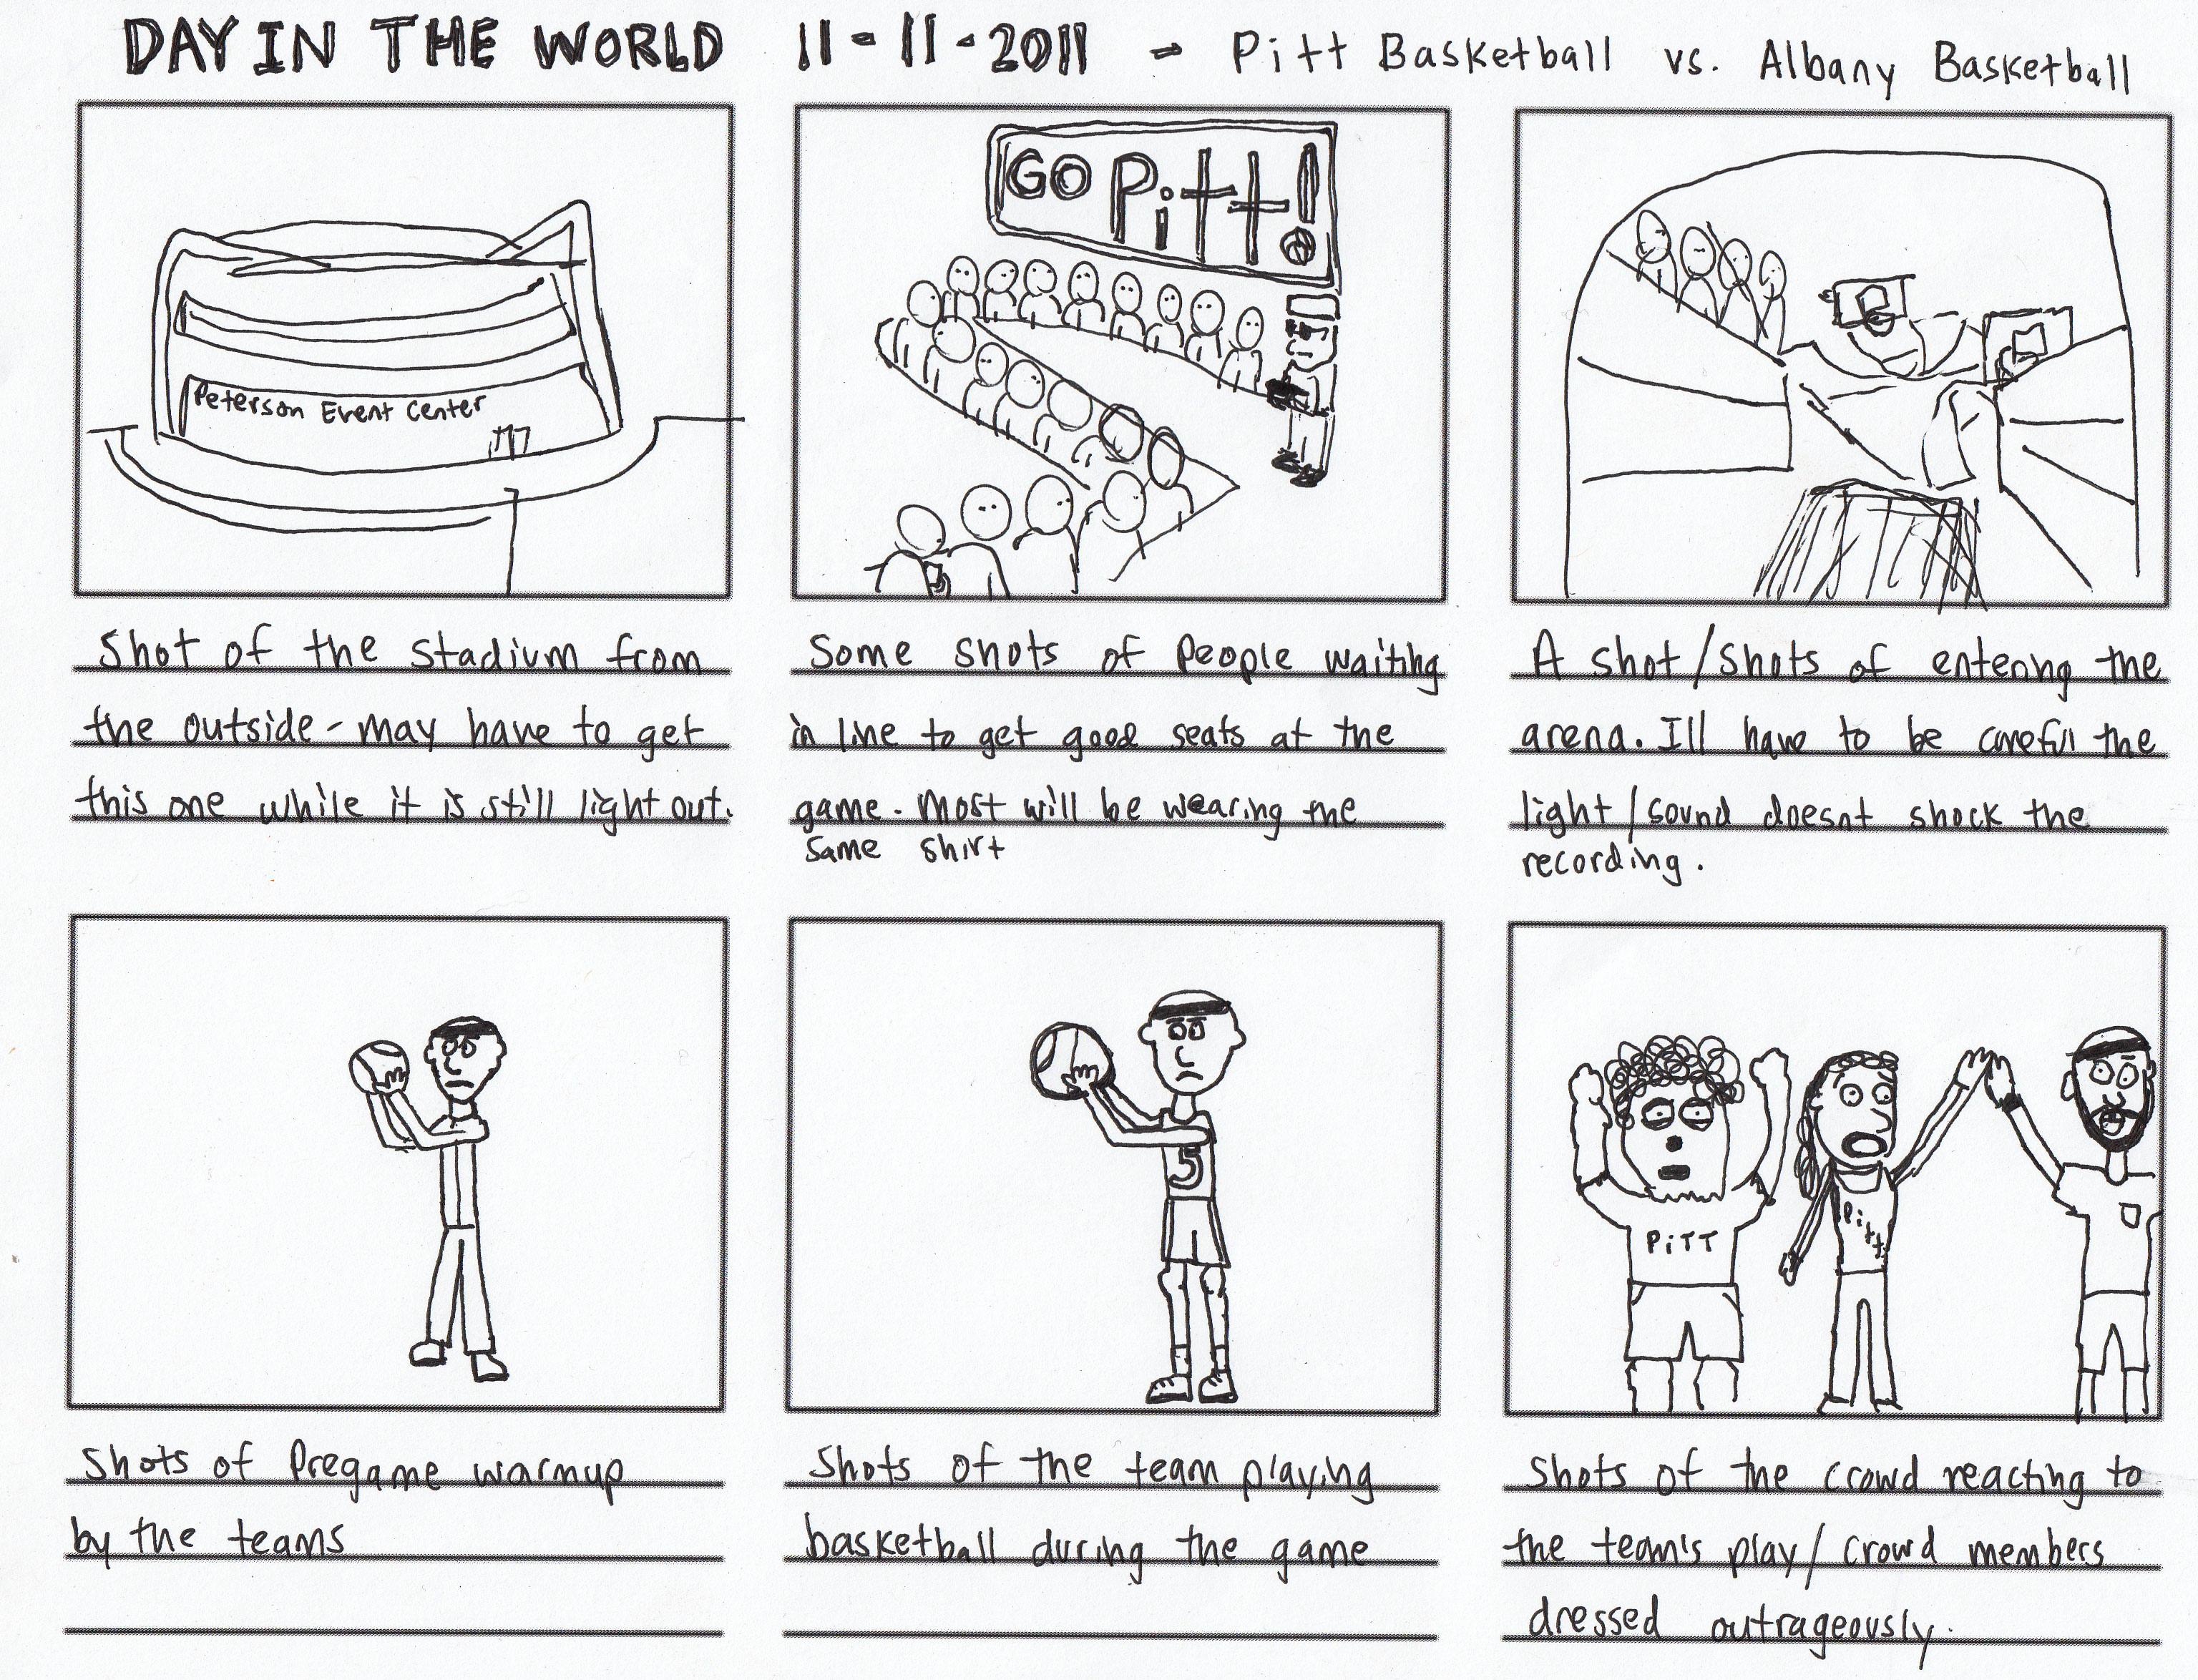 DAY IN THE WORLD 11-11-2011 - Pitt Basketball vs. Albany Basketball
Peterson Event Center
Shot of the stadium from
the outside - may have to get
this one while it is still light out.
GO Pitt!
Some shots of people waiting
in line to get good seats at the
game. Most will be wearing the
same shirt
A shot/shots of entering the
arena. Ill have to be careful the
light/sound doesnt shock the
recording.
Shots of Pregame warmup
by the teams
5
Shots of the team playing
basketball during the game
PiTT
Pitt
Shots of the crowd reacting to
the team's play/ crowd members
dressed outrageously.